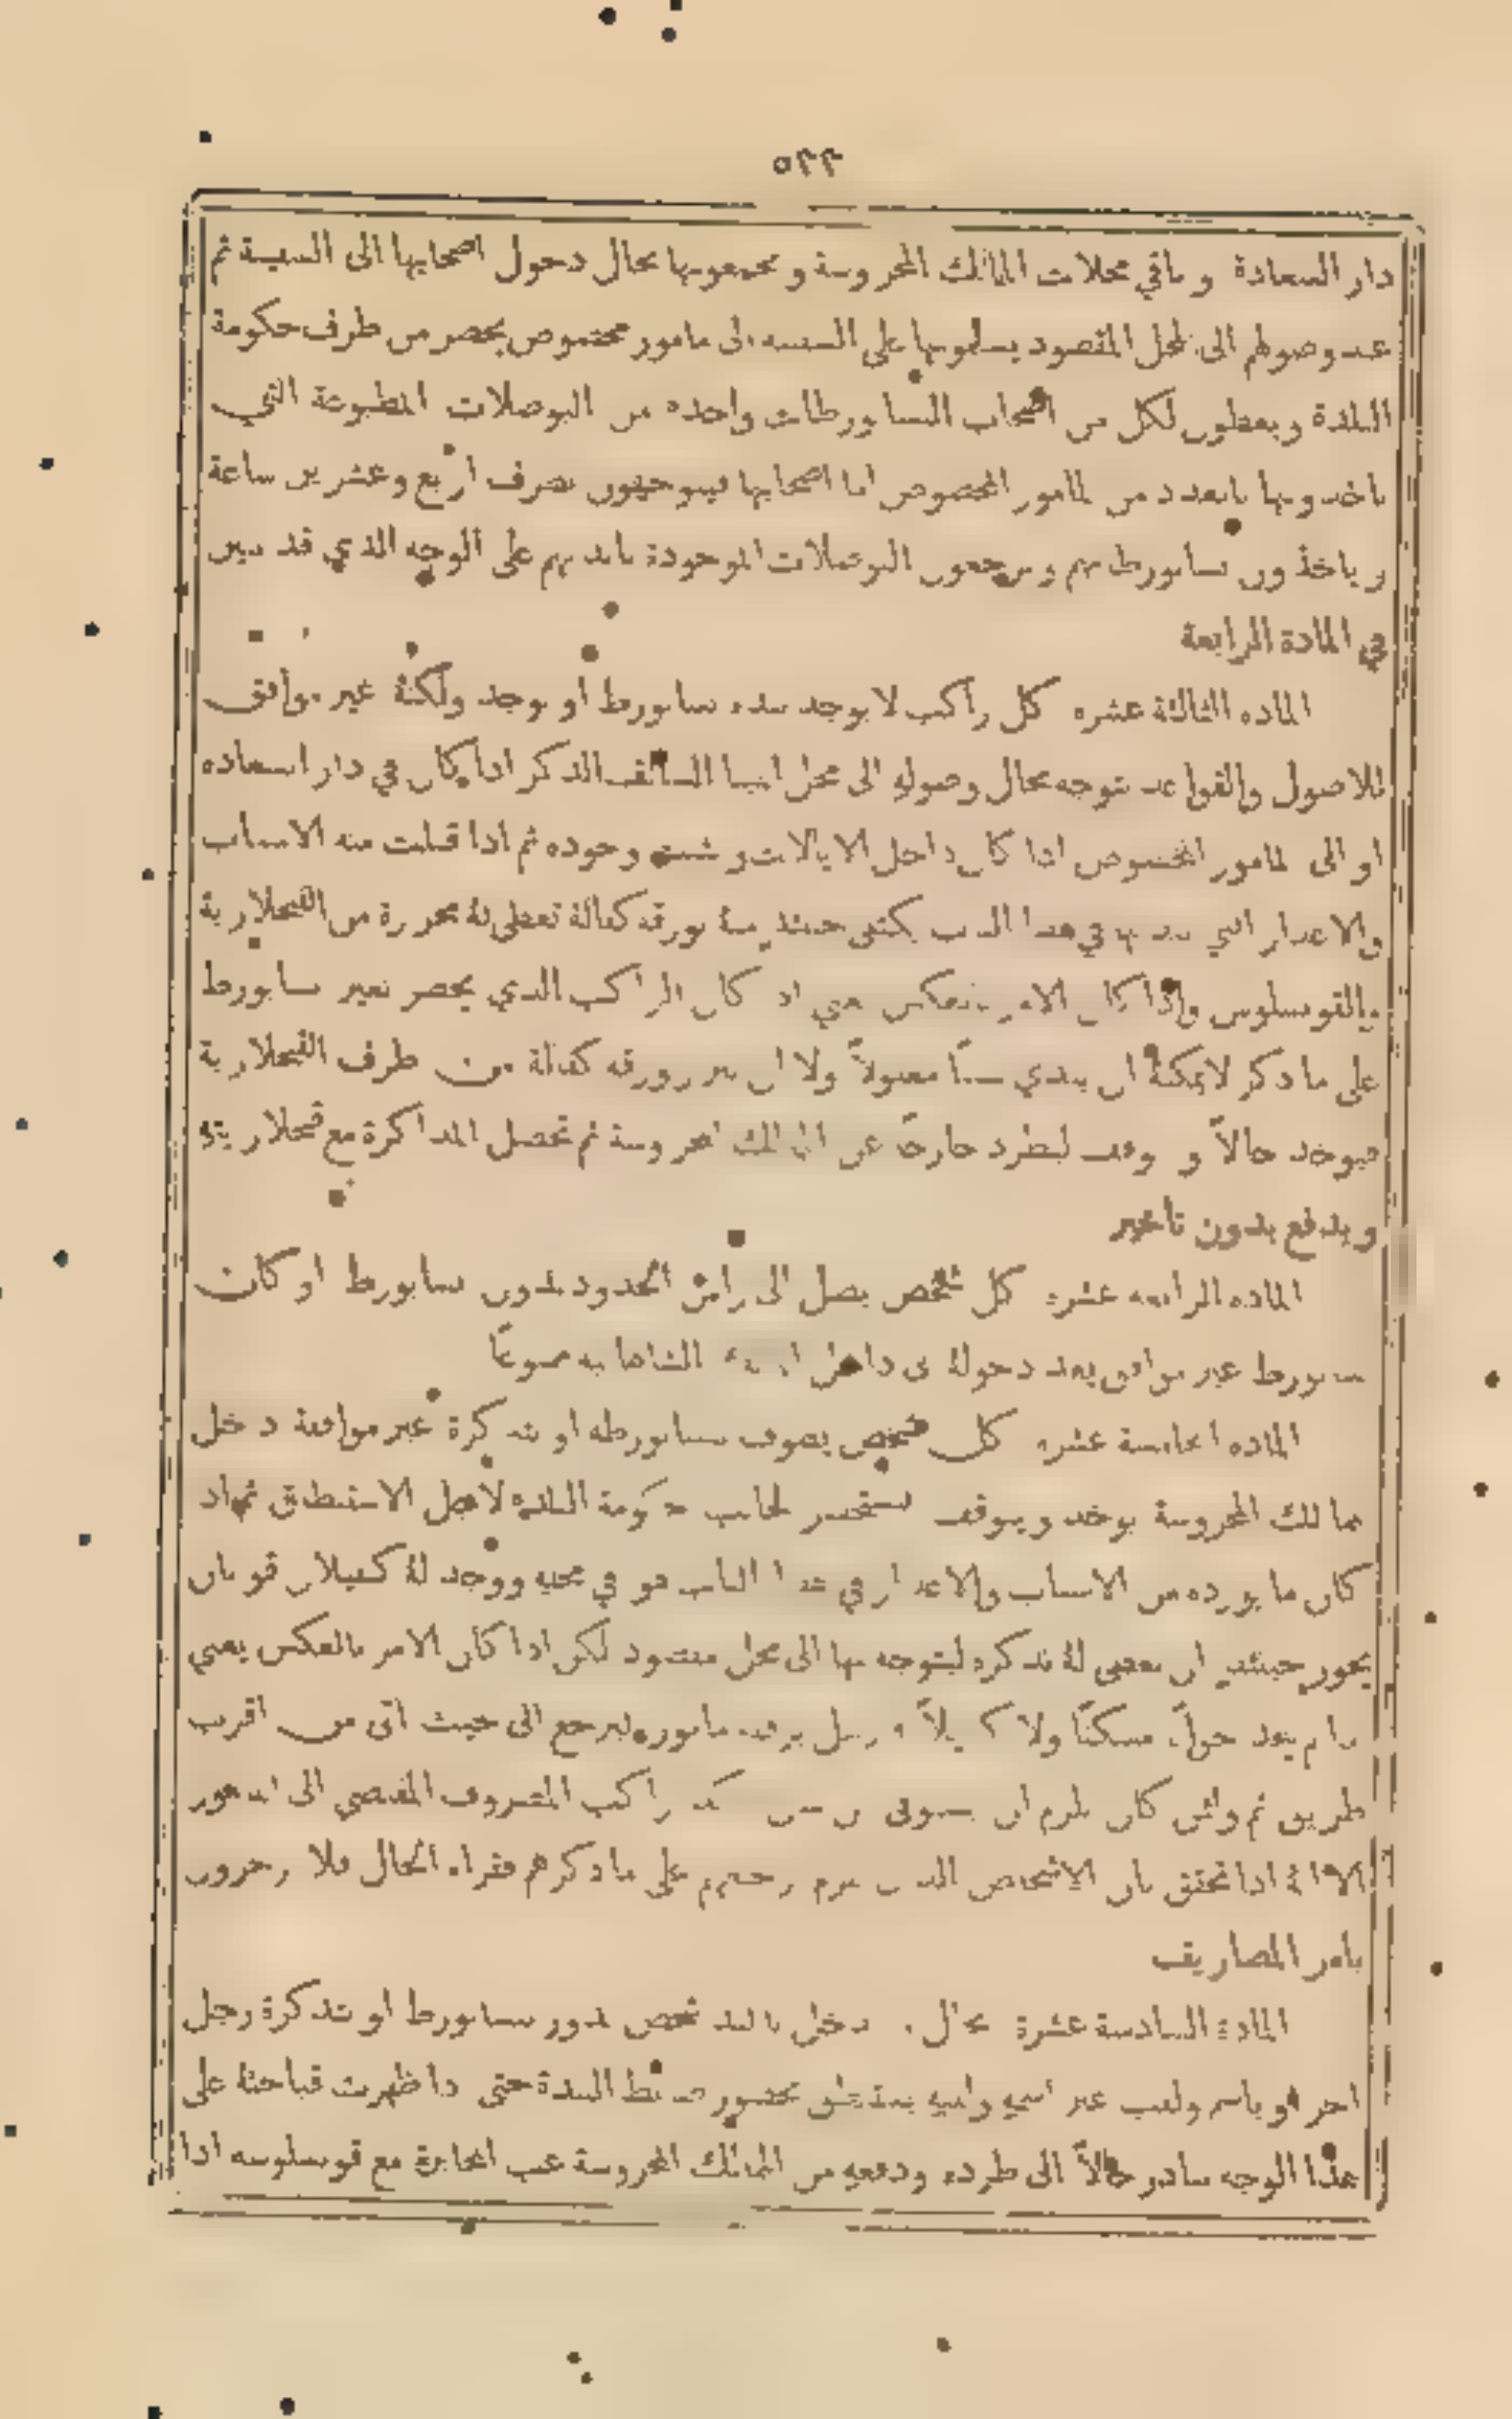 ٥٢٢
دار السعادة وباقي محلات الممالك المحروسة ويجمعونها بحال دخول اصحابها الى السفينة ثم
عند وصولهم الى المحل المقصود يسلمونها على السفينة الى مامور مخصوص يحضر من طرف حكومة
البلدة ويعطون لكل من اصحاب البسابورطات واحدة من البوصلات المطبوعة التي
ياخذونها بالعدد من المامور المخصوص اما اصحابها فيتوجهون بظرف اربع وعشرين ساعة
وياخذون بسابورطاتهم ويرجعون البوصلات الموجودة بايديهم على الوجه الذي قد تبين
في المادة الرابعة
المادة الثالثة عشرة كل راكب لا يوجد بيده بسابورط او يوجد ولكنة غير موافق
للاصول والقواعد يتوجه بحال وصولهِ الى محل السالف الذكر اذا كان في دار السعادة
او الى المامور المخصوص اذا كان داخل الايالات ويثبت وجوده ثم اذا قبلت منه الاسباب
والاعذار التي في هذا الباب يكتفى حينئذٍ منة بورقة كفالة تعطى لة محررة من القنجلارية
والقونسلوس واذا كان الامر بالعكس يعني اذا كان الراكب الذي يحضر بغير بسابورط
على ما ذكر لا يمكنة ان يبدي سببًا مقبولاً ولا ان يبرز ورقة كفالة من طرف القنجلارية
فيوخذ حالاً ويوقف ليطرد خارجًا عن الممالك المحروسة ثم تحصل المذاكرة مع قنجلاريتهِ
ويدفع بدون تاخير
المادة الرابعة عشرة كل شخص يصل الى راس الحدود بدون بسابورط او كان
بسابورط غير موافق يعد دخولة الى داخل الشاهانية ممنوعًا
المادة الخامسة عشرة كل شخص يصوف ببسابورطه او تذكرة غير موافقة دخل
ممالك المحروسة يوخذ ويوقف لجانب حكومة البلدة لاجل الاستنطاق ثم اذا
كان ما يورده من الاسباب والاعذار في هذا الباب هو في محلهِ ووجد لة كفيلان قويان
يجوز حينئذٍ ان يعطى لة تذكرة ليتوجه بها الى محل مقصود لكن اذا كان الامر بالعكس يعني
ما لم يجد جوابًا مسكتًا ولا كفيلاً يرسل برفقة مامور ليرجع الى حيث اتى من اقرب
طريق ثم وان كان يلزم ان يستوفى من راكب المصروف المقتضي الى المامور
الا انهُ اذا تحقق بان الاشخاص الذين يلزم رجعتهم على ما ذكر هم فقراء الحال فلا يجبرون
بامر المصاريف
المادة السادسة عشرة بحال دخل بالبلد شخص بدون بسابورط او تذكرة رجل
اخر او باسم ولقب غير اسمهِ ولقبهِ يستنطق بحضور ضابط البلدة حتى اذا ظهرت قباحتة على
هذا الوجه يبادر حالاً الى طرده ودفعهِ من الممالك المحروسة عقب المخابرة مع قونسلوسه اذا